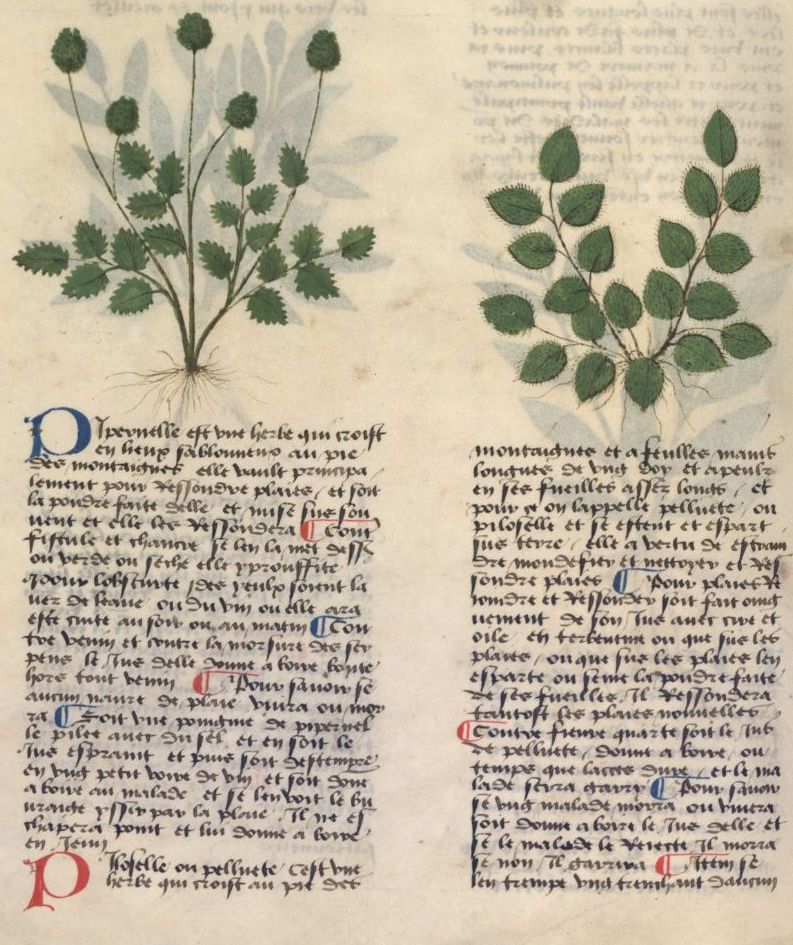 Pipernelle est vne herbe qui croist
en lieux sablonneux au pie
des montaignes elle vault principa
lement pour ressondre plaies, et soit
la poudre faite delle, et mise sus sou
uent et elle les ressondera ¶ Cont
fistule et chancre se len la met dess
ou verde ou seche elle y prouffite
Pour lobscurte des yeulx soient la
uez de leaue, ou du vin ou elle ara
este cuite au soir ou au matin ¶ Con
tre venin et contre la morsure des ser
pens le Jus delle donne a boire boute
hors tout venin ¶ Pour sauoir se
aucun naure de plaie viura ou mor
ra ¶ Soit vne poingnie de pipernel
le pilee auec du sel, et en soit le
Jus espraint et puis soit destempre
en vng petit voire de vin, et soit donne
a boire au malade et se len voit le bu
uraige yssir par la plaie, Il ne es
chapera point et lui donne a boire
en Jeun
Piloselle ou pelluete, Cest vne
herbe qui croist au pie des
montaignes et a feulles mains
longues de vng doy et a peulz
en ses fueilles assez longs, et
pour ce on lappelle pelluete, ou
piloselle et se estent et espart
sus terre, elle a vertu de estrain
dre mondefier et nettoyer et res
sondre plaies ¶ Pour plaies re
ioindre et ressonder soit fait oing
nement de son Jus auec cire et
oile et terbentine ou que sus les
plaies, ou que sus les plaies len
esparte ou seme la poudre faite
de ses fueilles, Il ressondera
tantost les plaies nouuelles
¶ Contre fieure quarte soit le Jus
de pelluete, donne a boire, ou
temps que lacces dure, et le ma
lade sera gary ¶ Pour sauoir
se vng malade morra ou viuera
soit donne a boire le Jus delle et
se le malade le reiecte Il morra
se non Il garira ¶ Item se
len trempe vng trenchant daucun